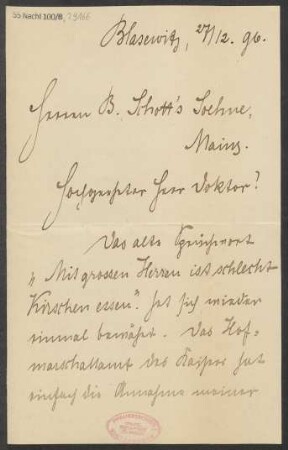 55 Nachl 100/B,
Blasewitz, 27/12. 96.
Herren B. Schott's Soehne,
Mainz.
Hochgeehrter Herr Doktor!
Das alte Sprichwort
„Mit grossen Herren ist schlecht
Kirschen essen" hat sich wieder
einmal bewährt. Das Hof-
marschallamt des Kaisers hat
einfach die Annahme meiner